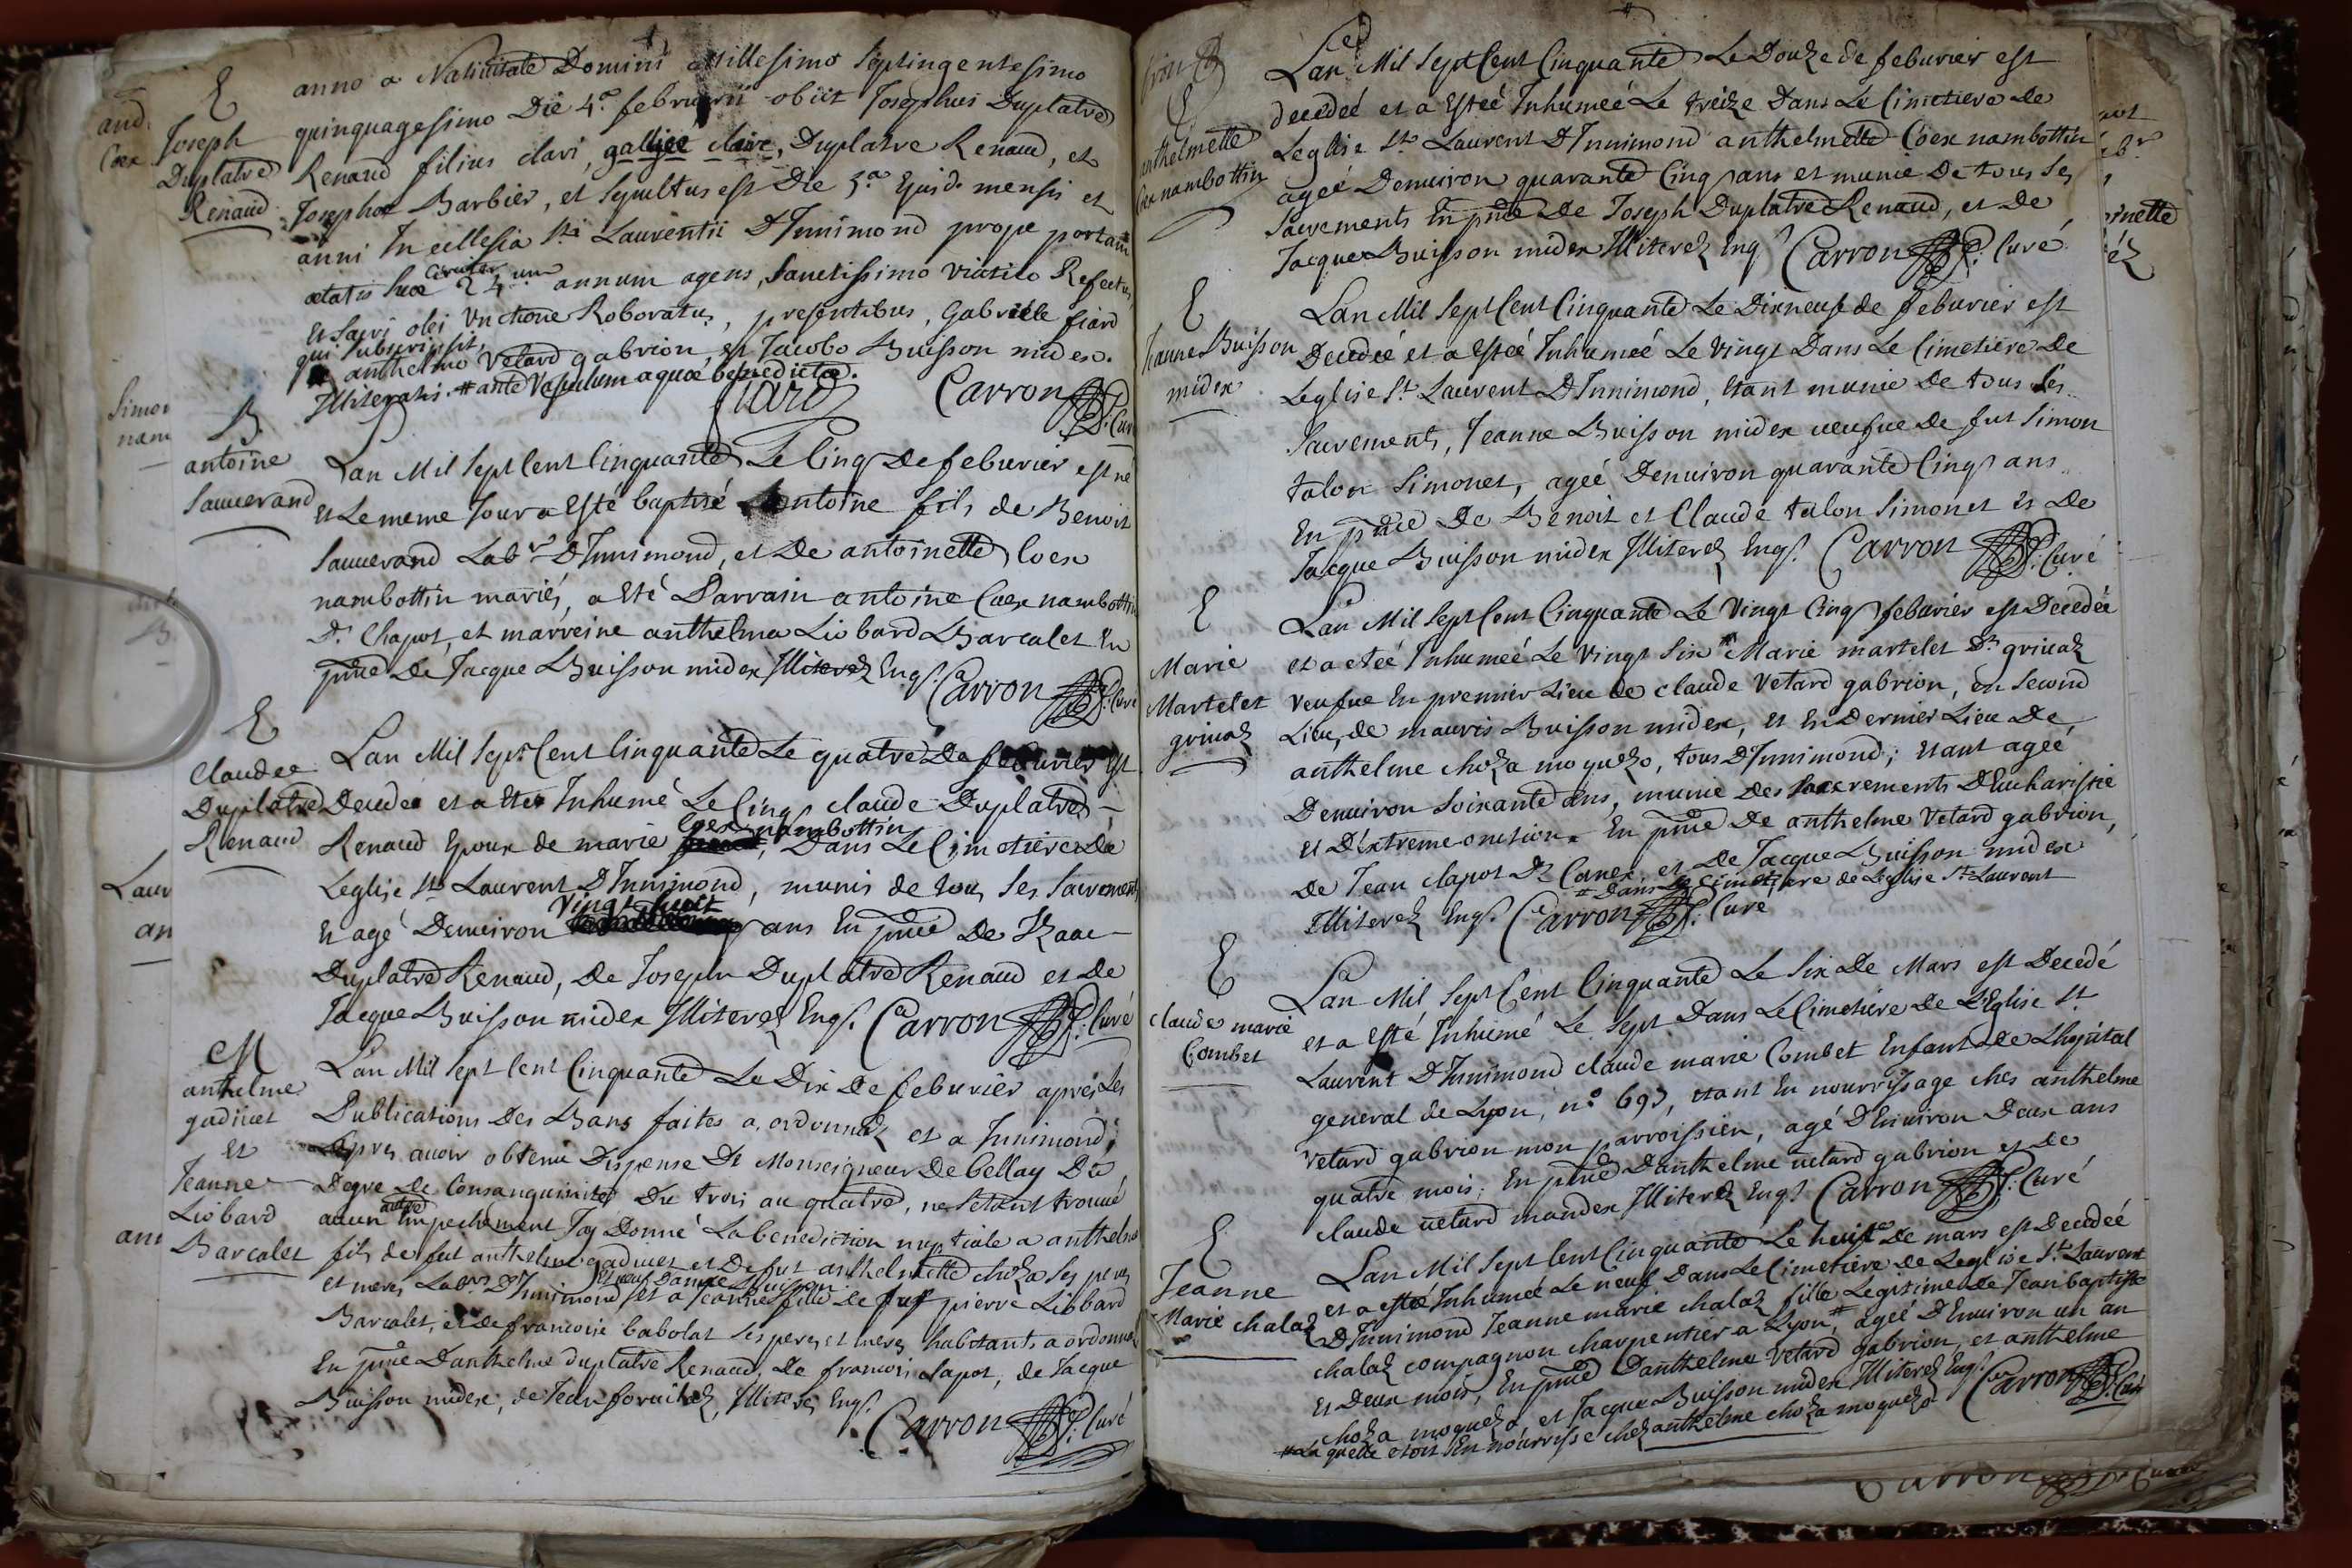 E
Joseph
Duplatre
Renaud
anno a Nativitate Domini Millesimo Septingentesimo
quinquagesimo Die 4.a februarii obiit Josephus Duplatre
Renaud filius clari, gallicé claire, Duplatre Renaud, et
Josephae Barbier, et sepultus est Die 5.a Ejusd. mensis et
anni In ecclesia Sti Laurentii D'Innimond prope portam #
aetatis suae circiter 24um annum agens, Sanctissimo Viatico Refectus,
et Sacri olei Unctione Roboratus, presentibus, Gabriële fiard
qui subscripsit,
anthelmo Vetard gabrion, et Jacobo Buisson midex.
Illiteratis. # ante Vasculum aquae benedictae.
fiard Carron P. Curé
B
antoine
Sauverand
Lan Mil Sept Cent Cinquante Le Cinq De feburier est né
et Le meme Jour a Esté baptisé Antoine fils de Benoit
Sauverand Labr D'Innimond, et De antoinette Coex
nambottin mariés, a Eté Parrain antoine Coex nambottin
Dt Chapot, et marreine anthelma Liobard Barcalet En
pnce De Jacque Buisson midex Illiterez Enqs. Carron P. Curé
E
Claudee
Duplatre
Renaud
Lan Mil Sept Cent Cinquante Le quatre De feburier Est
Decedee et a Etee Inhumé Le Cinq claude Duplatre
Renaud Epoux de marie Coex nambottin, Dans Le Cimetiere De
Leglise St Laurent D'Innimond, munis de tous Ses Sacrements
Et agé Denviron Vingt huit ans En pnce De Izaac
Duplatre Renaud, De Joseph Duplatre Renaud et de
Jacque Buisson midex Illiterez Enqs. Carron P. Curé
M
anthelme
gadiuet
Et
Jeanne
Liobard
Barcalet
Lan Mil Sept Cent Cinquante Le Dix De feburier après Les
Publications Des Bans faites a ordonnaz et a Innimond;
apres avoir obtenu Dispense De Monseigneur De Bellay Du
Degre De Consanguinité Du trois au quatre, ne Setant trouvé
aucun autre Empechement Jay Donné La benediction nuptiale a anthelme
fils de fut anthelme gadiuet et De fut anthelmette choza Ses peres
et meres Labrs D'Innimond et a Jeanne fille De fut pierre Liobard
Barcalet, et de francoise babolat ses peres et meres habitants a ordonnaz
En pnce Danthelme Duplatre Renaud, De francois Lapot, de Jacque
Buisson midex, de Jean Illiterez Enqs.
Carron P. Curé
E
anthelmette
Coex nambottin
Lan Mil Sept Cent Cinquante Le Douze de feburier est
decedeé et a Esteé Inhumeé Le treize Dans Le Cimetiere De
Leglise St Laurent D'Innimond anthelmette Coex nambottin
ageé Denviron quarante Cinq ans et munie De tous Ses
Sacrements En pnce De Joseph Duplatre Renaud, et De
Jacque Buisson midex Illiterez Enqs Carron P. Curé
E
Jeanne Buisson
midex
Lan Mil Sept Cent Cinquante Le Dixneuf de feburier est
Decedeé et a Esteé Inhumeé Le Vingt Dans Le Cimetiere De
Leglise St Laurent D'Innimond, Etant munie De tous Ses
Sacrements, Jeanne Buisson midex veufue De fut Simon
talon Simonet, ageé Denviron quarante Cinq ans
En pnce De Benoit et Claude talon Simonet et De
Jacque Buisson midex Illiterez Enqs. Carron P. Curé
E
Marie
Martelet
grinaz
Lan Mil Sept Cent Cinquante Le Vingt Cinq feburier est Decedée
et a eteé Inhumeé Le Vingt Six # Marie martelet Dt grinaz
veufue En premier Lieu De claude Vetard gabrion, en Second
Lieu, de mauris Buisson midex, et En Dernier Lieu De
anthelme choza moquezo, tous D'Innimond; etant ageé
Denviron Soixante ans, munie Des Sacrements D'Eucharistie
et D'Extreme onction. En pnce De anthelme Vetard gabrion,
De Jean clapot Dt Canex et De Jacque Buisson midex
# Dans Le Cimetiere de Leglise St Laurent
Illiterez Enqs. Carron P. Curé
E
claude marie
Combet
Lan Mil Sept Cent Cinquante Le Six De Mars est Decedé
et a Esté Inhumé Le Sept Dans Le Cimetiere De L'Eglise St
Laurent D'Innimond claude marie Combet Enfant De Lhopital
general de Lyon, n° 693, etant En nourrissage ches anthelme
vetard gabrion mon parroissien, agé D'Environ Deux ans
quatre mois; En pnce Danthelme vetard gabrion et de
claude vetard mandex Illiterez Enqs Carron P. Curé
E
Jeanne
Marie chalaz
Lan Mil Sept Cent Cinquante Le huit De mars est Decedeé
et a esteé Inhumeé Le neuf Dans Le Cimetiere de Leglise St Laurent
D'Innimond Jeanne marie chalaz fille Legitime de Jean baptiste
chalaz compagnon charpentier a Lyon, # ageé D'Environ un an
et Deux mois, En pnce D'anthelme Vetard gabrion, et anthelme
choza moquezo, et Jacque Buisson midex Illiterez Enqs. Carron P. Curé
# La quelle etoit En nourrisse chez anthelme choza moquezo
Carron P. Curé